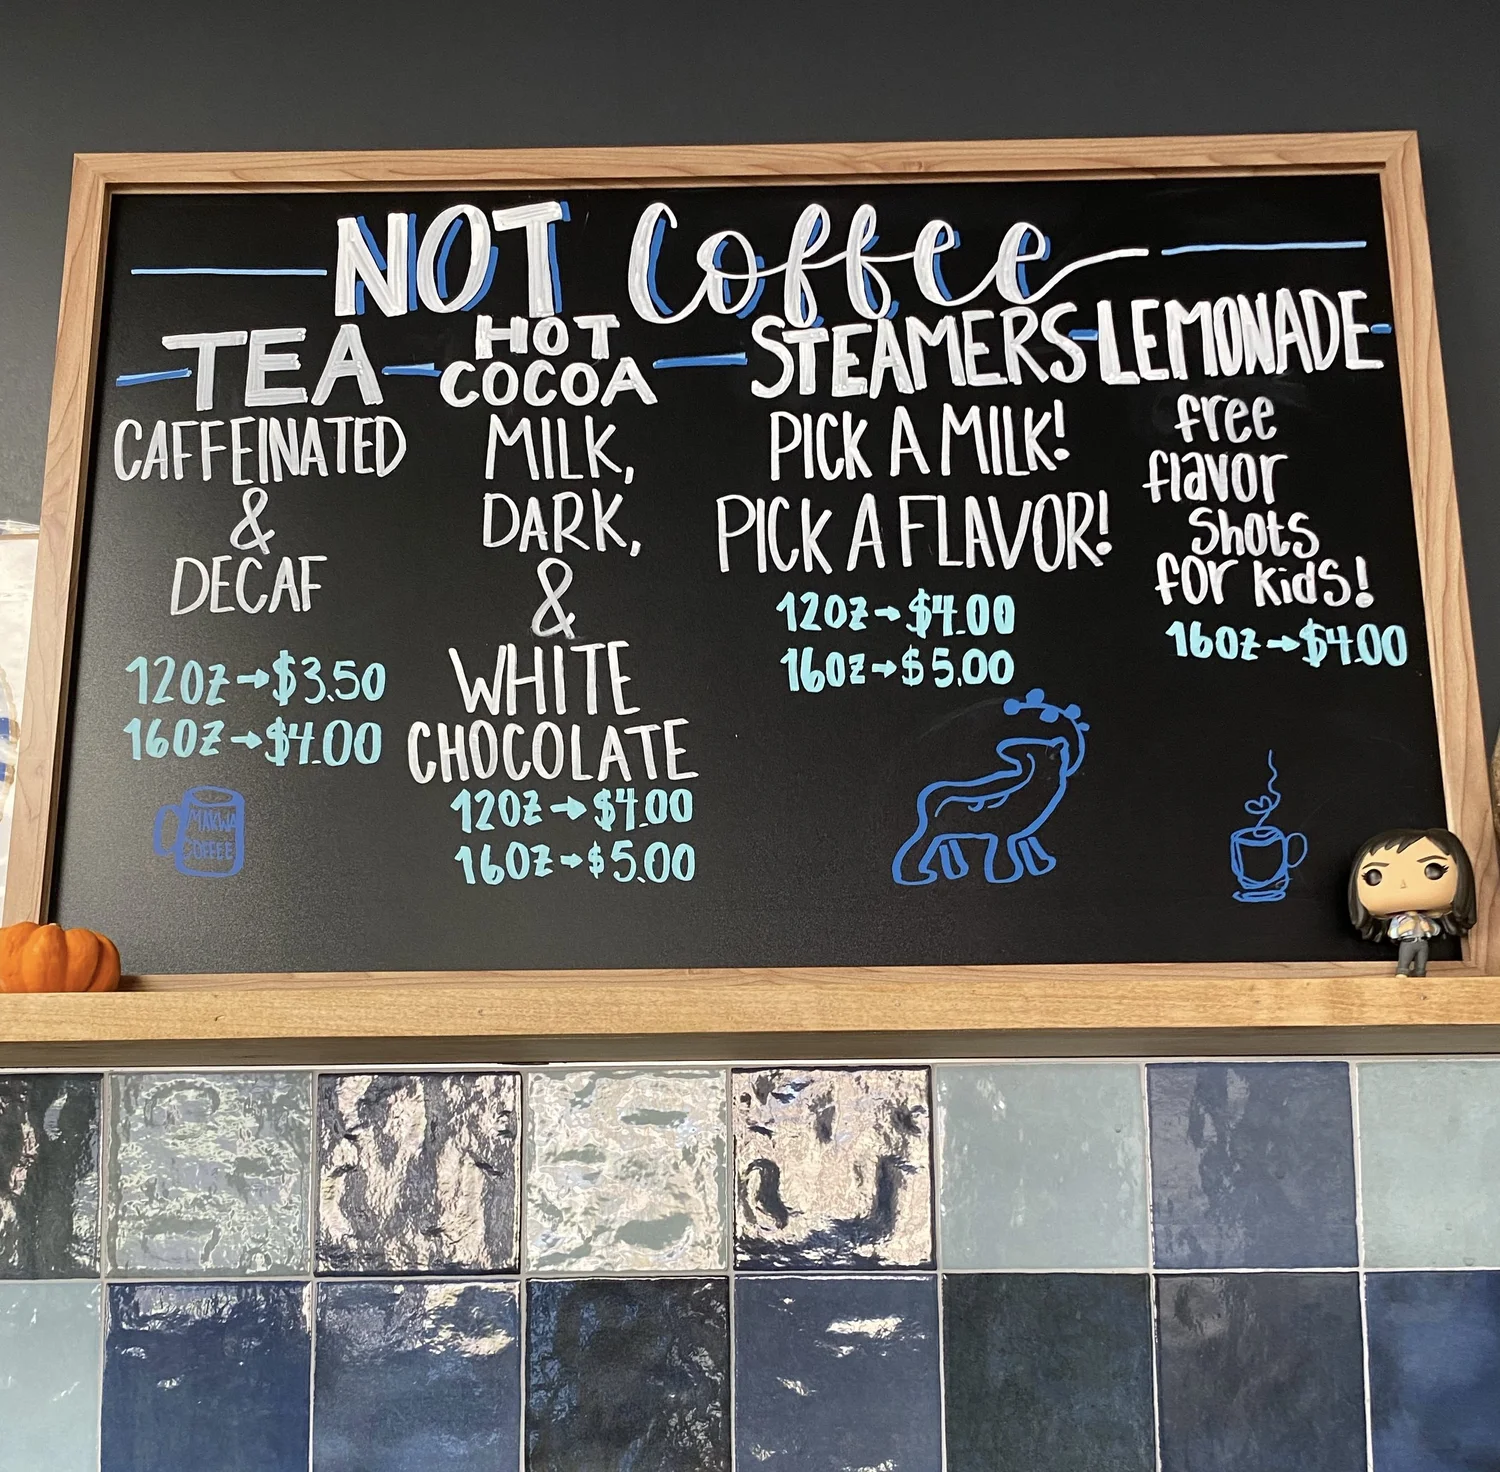 NOT Coffee
TEA
CAFFEINATED
&
DECAF
12OZ→$3.50
16OZ→$4.00
HOT
COCOA
MILK,
DARK,
&
WHITE
CHOCOLATE
12OZ→$4.00
16OZ→$5.00
STEAMERS
PICK A MILK!
PICK A FLAVOR!
12OZ→$4.00
16OZ→$5.00
LEMONADE
free
flavor
shots
for kids!
16OZ→$4.00
COFFEE